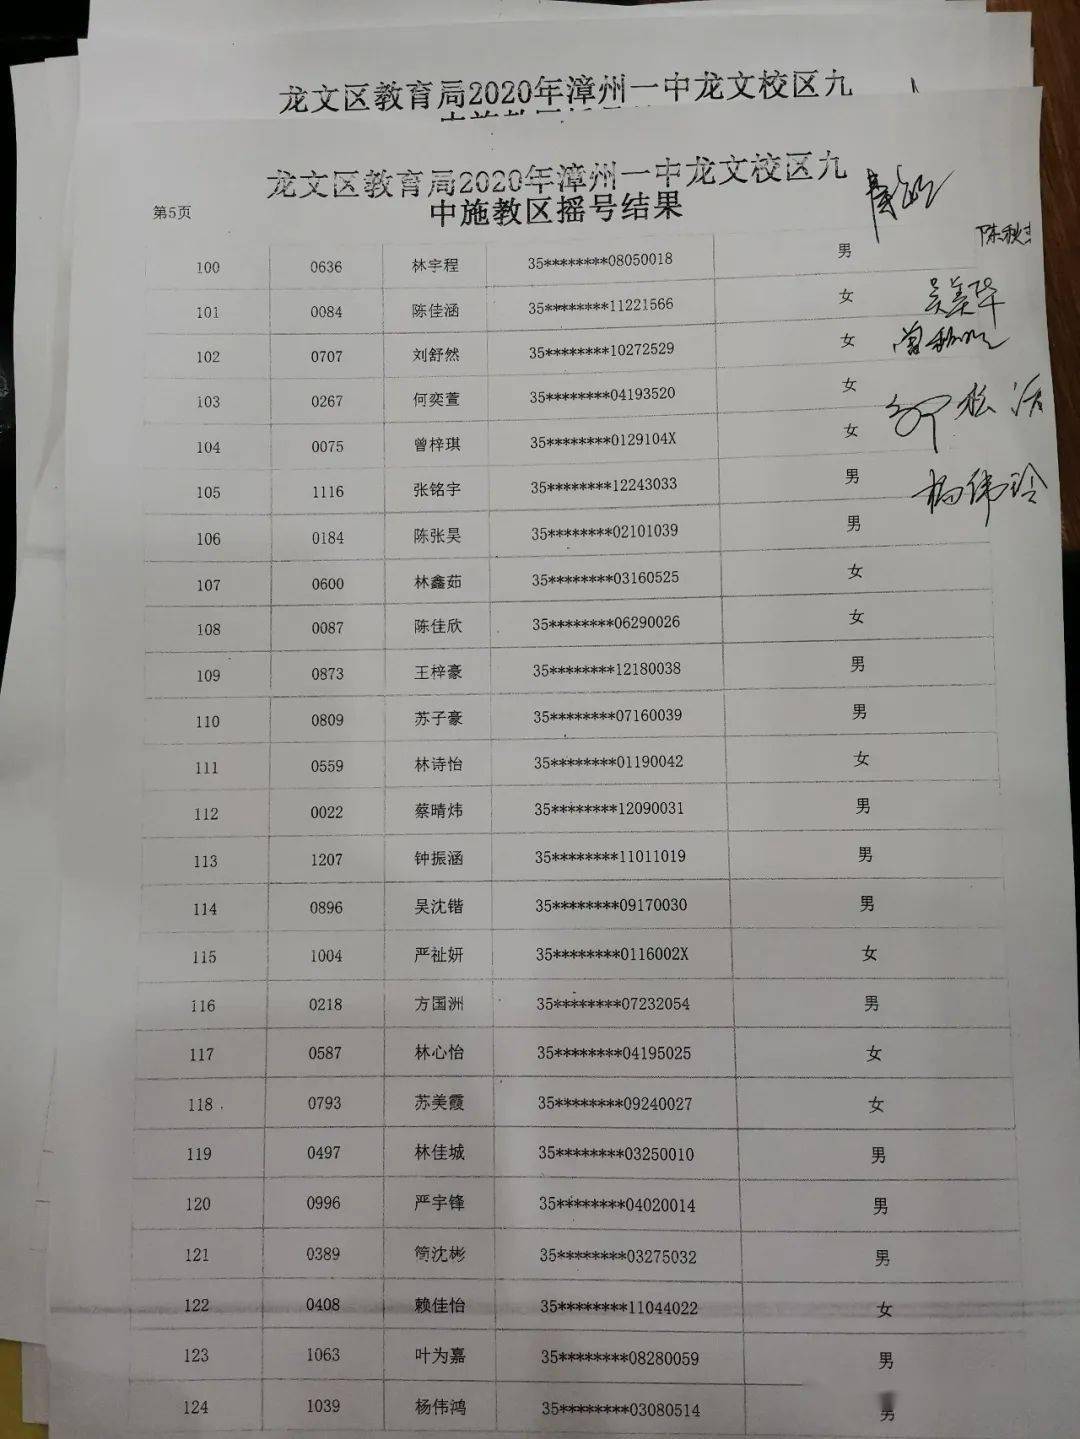 龙文区教育局2020年漳州一中龙文校区九
龙文区教育局2020年漳州一中龙文校区九
中施教区摇号结果
第5页
陈秋
100 0636 林宇程 35********08050018 男
101 0084 陈佳涵 35********11221566 女
吴美华
102 0707 刘舒然 35********10272529 女
103 0267 何奕萱 35********04193520 女
104 0075 曾梓琪 35********0129104X 女
105 1116 张铭宇 35********12243033 男
杨伟玲
106 0184 陈张昊 35********02101039 男
107 0600 林鑫茹 35********03160525 女
108 0087 陈佳欣 35********06290026 女
109 0873 王梓豪 35********12180038 男
110 0809 苏子豪 35********07160039 男
111 0559 林诗怡 35********01190042 女
112 0022 蔡晴炜 35********12090031 男
113 1207 钟振涵 35********11011019 男
114 0896 吴沈锴 35********09170030 男
115 1004 严祉妍 35********0116002X 女
116 0218 方国洲 35********07232054 男
117 0587 林心怡 35********04195025 女
118 0793 苏美霞 35********09240027 女
119 0497 林佳城 35********03250010 男
120 0996 严宇锋 35********04020014 男
121 0389 简沈彬 35********03275032 男
122 0408 赖佳怡 35********11044022 女
123 1063 叶为嘉 35********08280059 男
124 1039 杨伟鸿 35********03080514 男